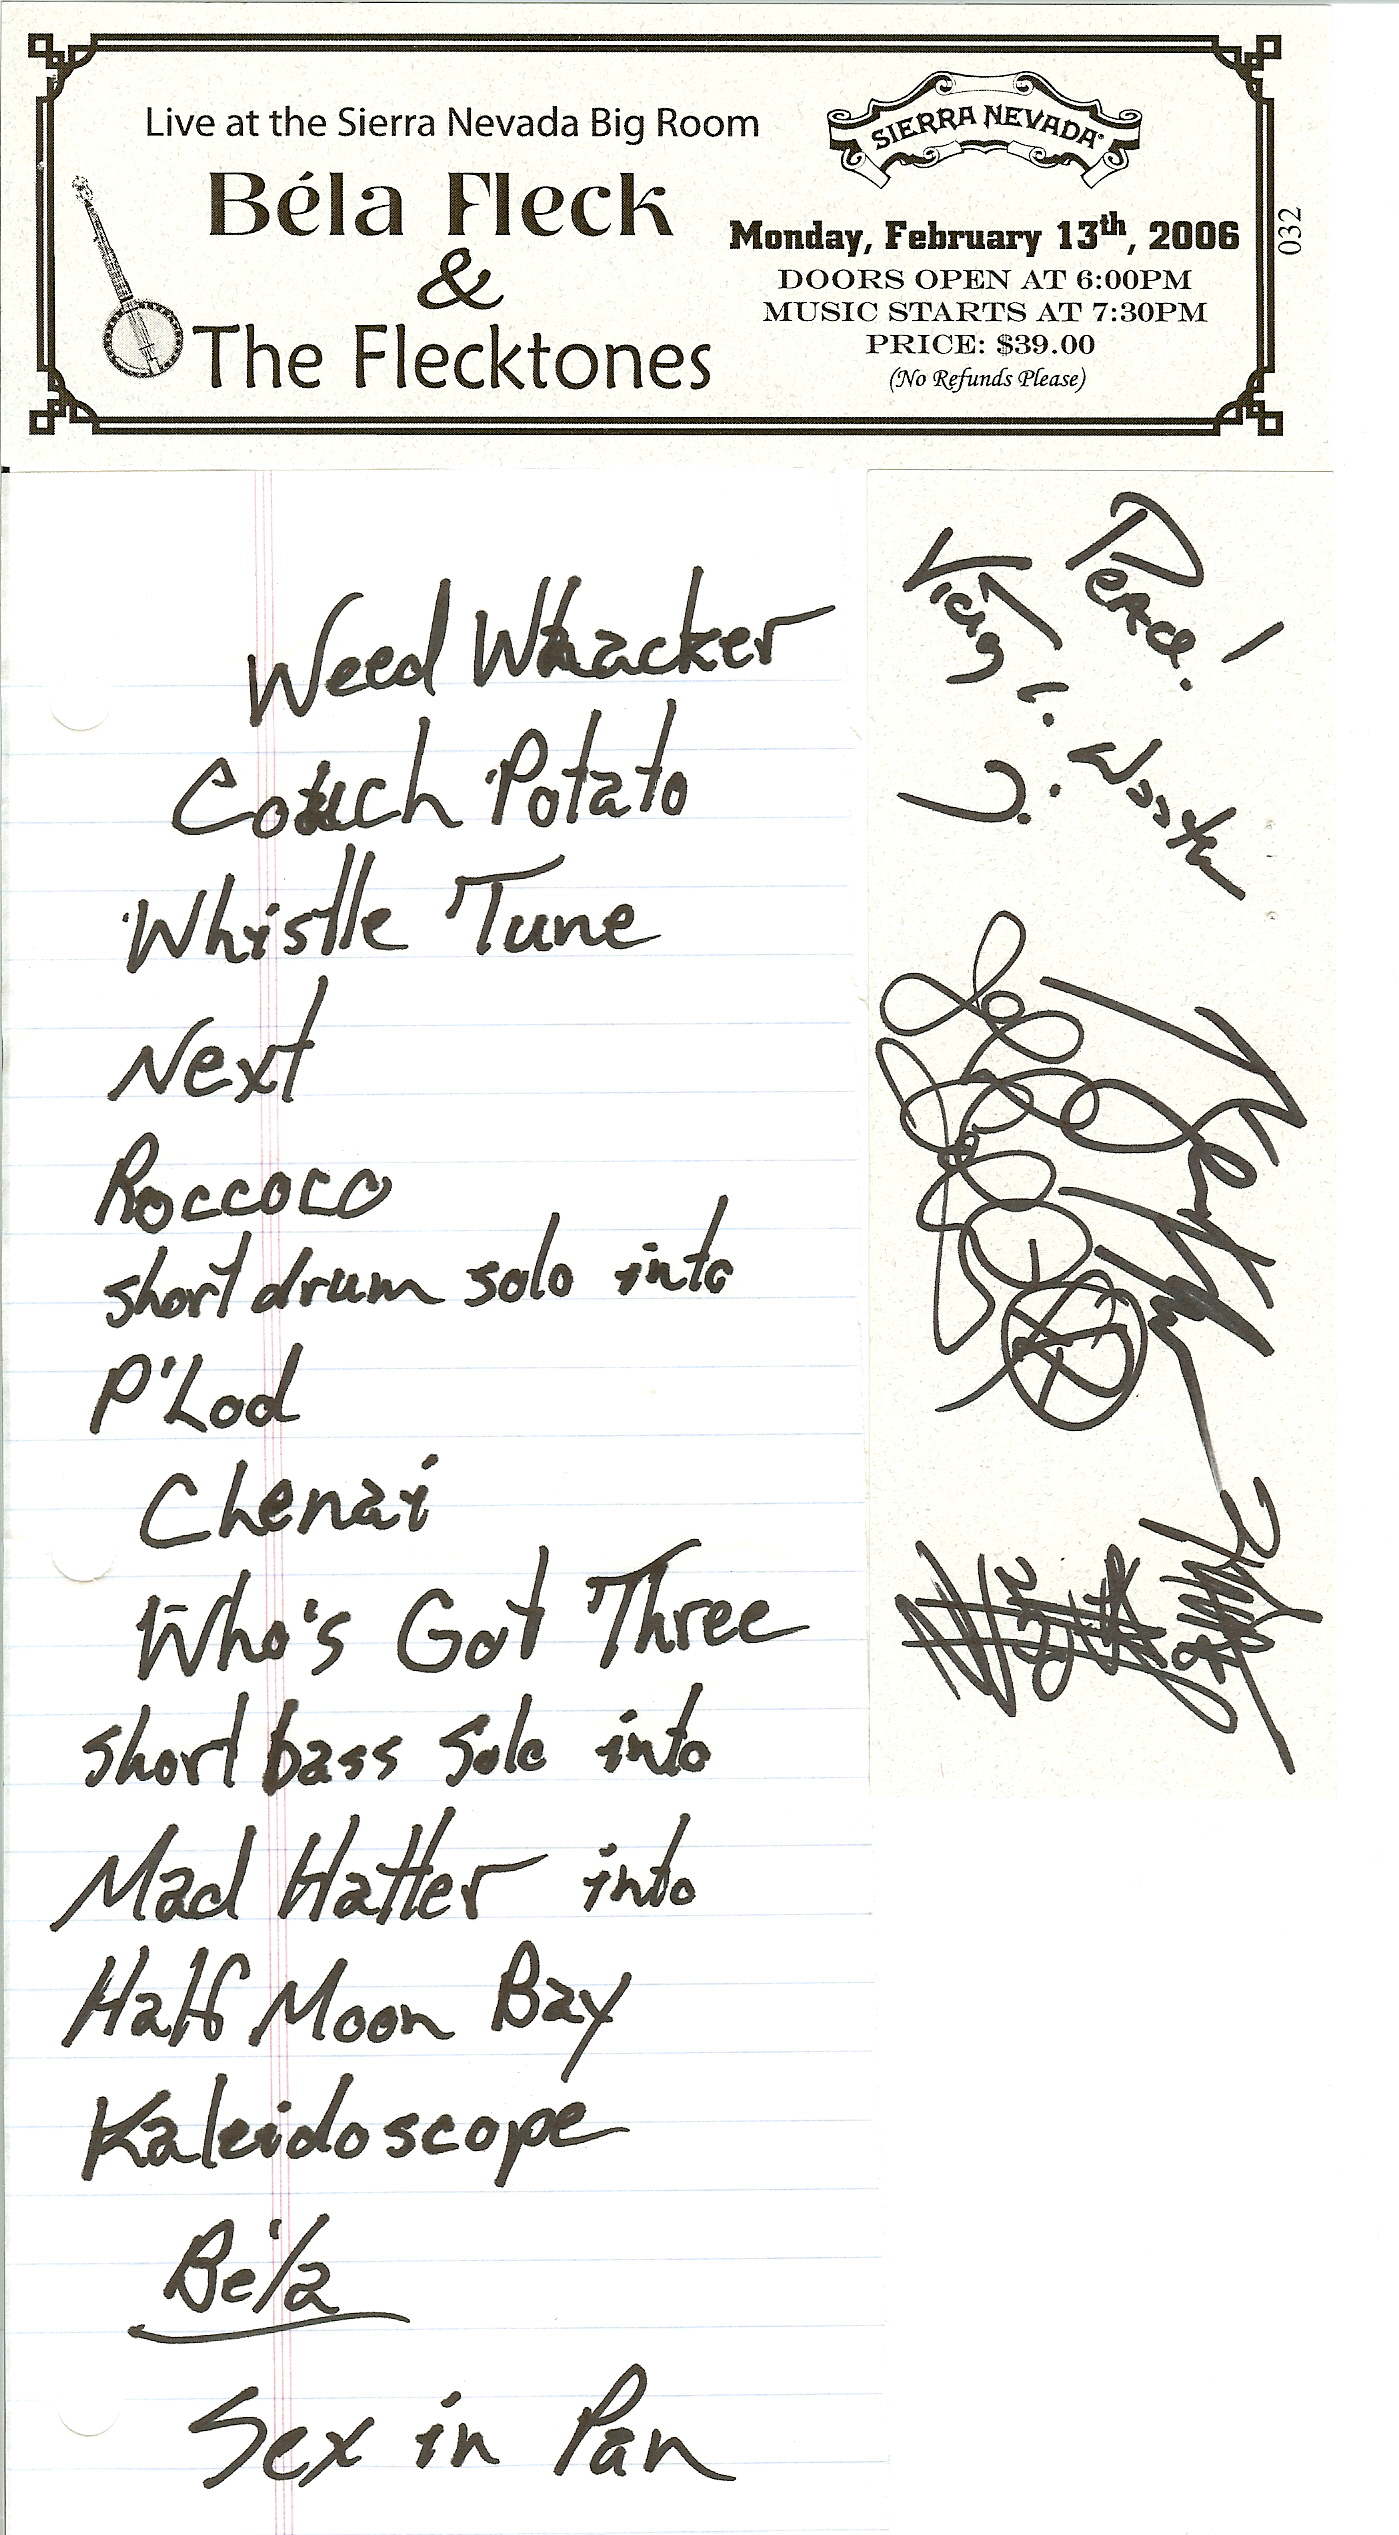 Live at the Sierra Nevada Big Room
Béla Fleck
&
The Flecktones
SIERRA NEVADA®
Monday, February 13th, 2006
DOORS OPEN AT 6:00PM
MUSIC STARTS AT 7:30PM
PRICE: $39.00
(No Refunds Please)
032
Weed Whacker
Couch Potato
Whistle Tune
Next
Roccoco
short drum solo into
P'Lod
Chenai
Who's Got Three
short bass solo into
Mad Hatter into
Half Moon Bay
Kaleidoscope
Béla
Sex in Pan
Peace!
Victor L. Wooten